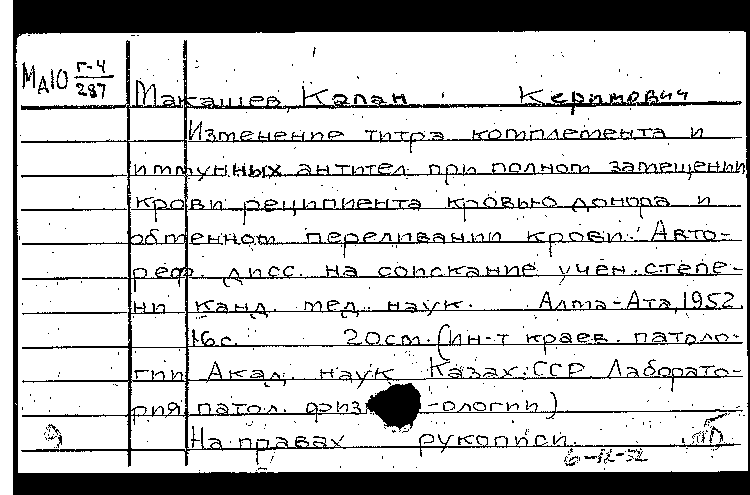 МД10 Г-4/287
Макашев, Капан Керимович
Изменение титра комплемента и
иммунных антител при полном замещении
крови реципиента кровью донора и
обменном переливании крови. Авто-
реф. дисс. на соискание учен. степе-
ни канд. мед. наук. Алма-Ата, 1952.
16 с. 20 см. (Ин-т краев. патоло-
гии Акад. наук Казах. ССР Лаборато-
рия патол. физ -ологии)
На правах рукописи.
6-12-52